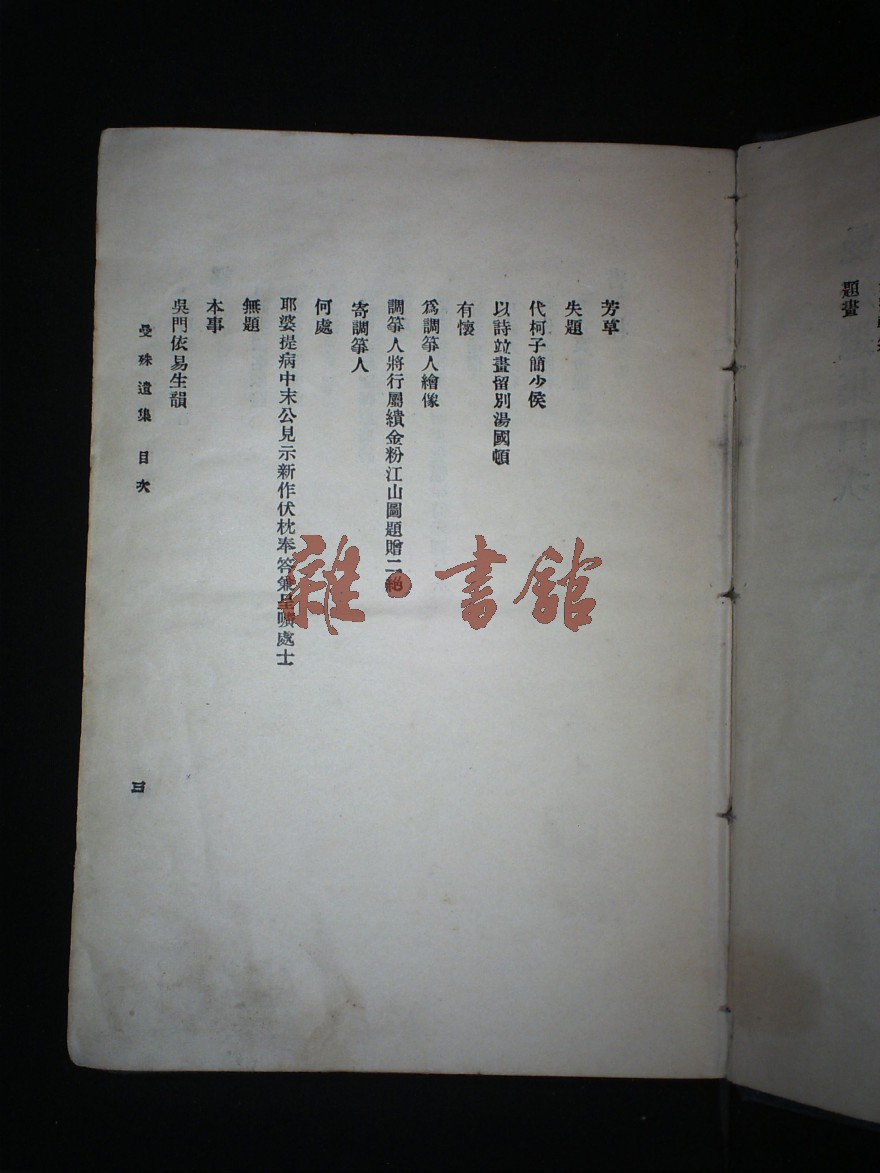 題畫
芳草
失題
代柯子簡少侯
以詩竝畫留別湯國頓
有懷
爲調箏人繪像
調箏人將行屬繢金粉江山圖題贈二絕
寄調箏人
何處
耶婆提病中末公見示新作伏枕奉答兼呈曠處士
無題
本事
吳門依易生韻
曼殊遺集 目次
三
雜·書館